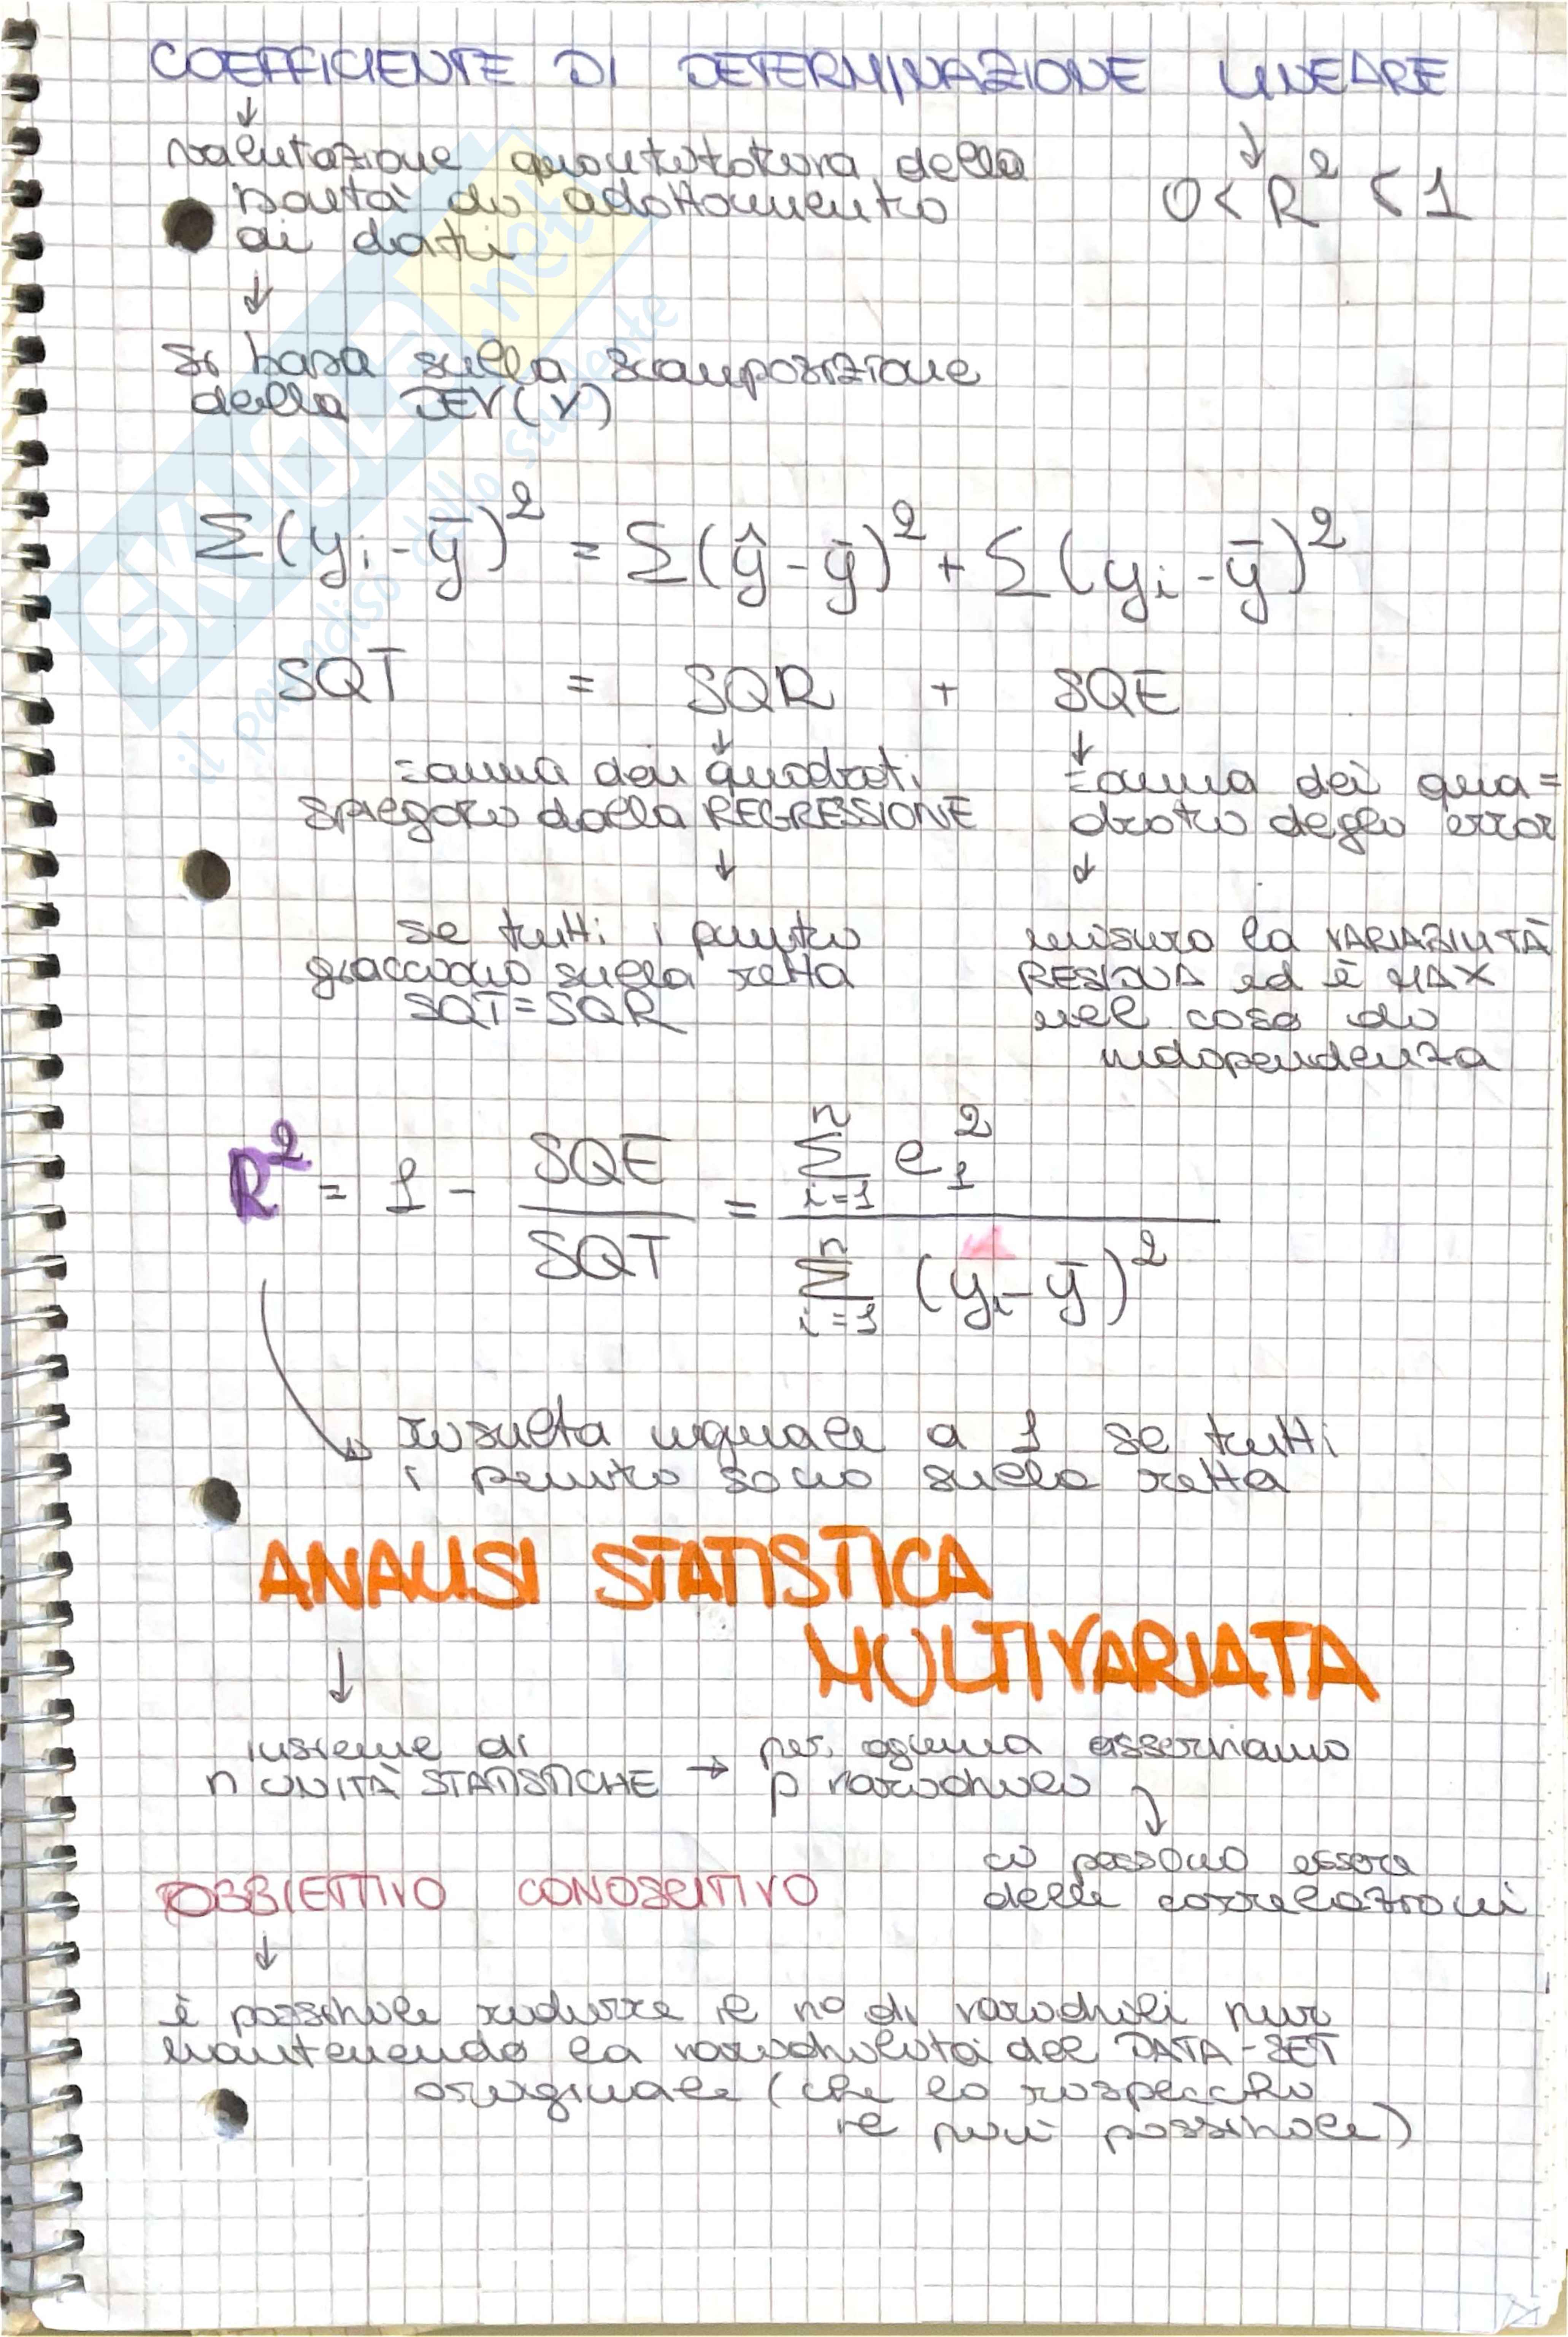 COEFFICIENTE DI DETERMINAZIONE LINEARE
valutazione quantitativa della
bontà di adattamento
ai dati
0 < R² < 1
si basa sulla scomposizione
della DEV(Y)
Σ(yᵢ - ȳ)² = Σ(ŷ - ȳ)² + Σ(yᵢ - ȳ)²
SQT = SQR + SQE
somma dei quadrati
spiegata dalla REGRESSIONE
somma dei qua=
drati degli error
se tutti i punti
giacciono sulla retta
SQT = SQR
misura la VARIABILITÀ
RESIDUA ed è MAX
nel caso di
indipendenza
R² = 1 - SQE / SQT = Σⁿᵢ₌₁ e₁² / Σⁿᵢ₌₁ (yᵢ - ȳ)²
risulta uguale a 1 se tutti
i punti sono sulla retta
ANALISI STATISTICA
MULTIVARIATA
insieme di
n UNITÀ STATISTICHE → per ognuna osserviamo
p variabili
ci possono essere
delle correlazioni
OBBIETTIVO CONOSCITIVO
è possibile ridurre il n° di variabili pur
mantenendo la variabilità del DATA-SET
originale (che lo rispecchi
il più possibile)
SKUOLA.net
il paradiso dello studente